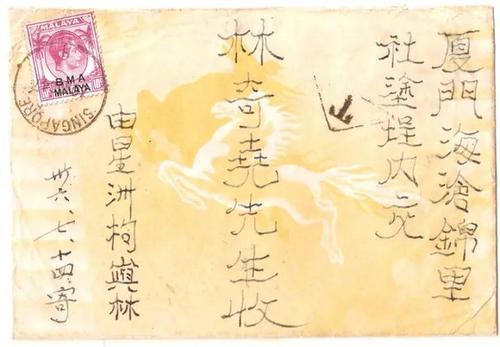 厦門海滄錦里
社塗埕内交
林奇堯先生收
由星洲林
卅六、七、十四寄
MALAYA
BMA
MALAYA
SINGAPORE